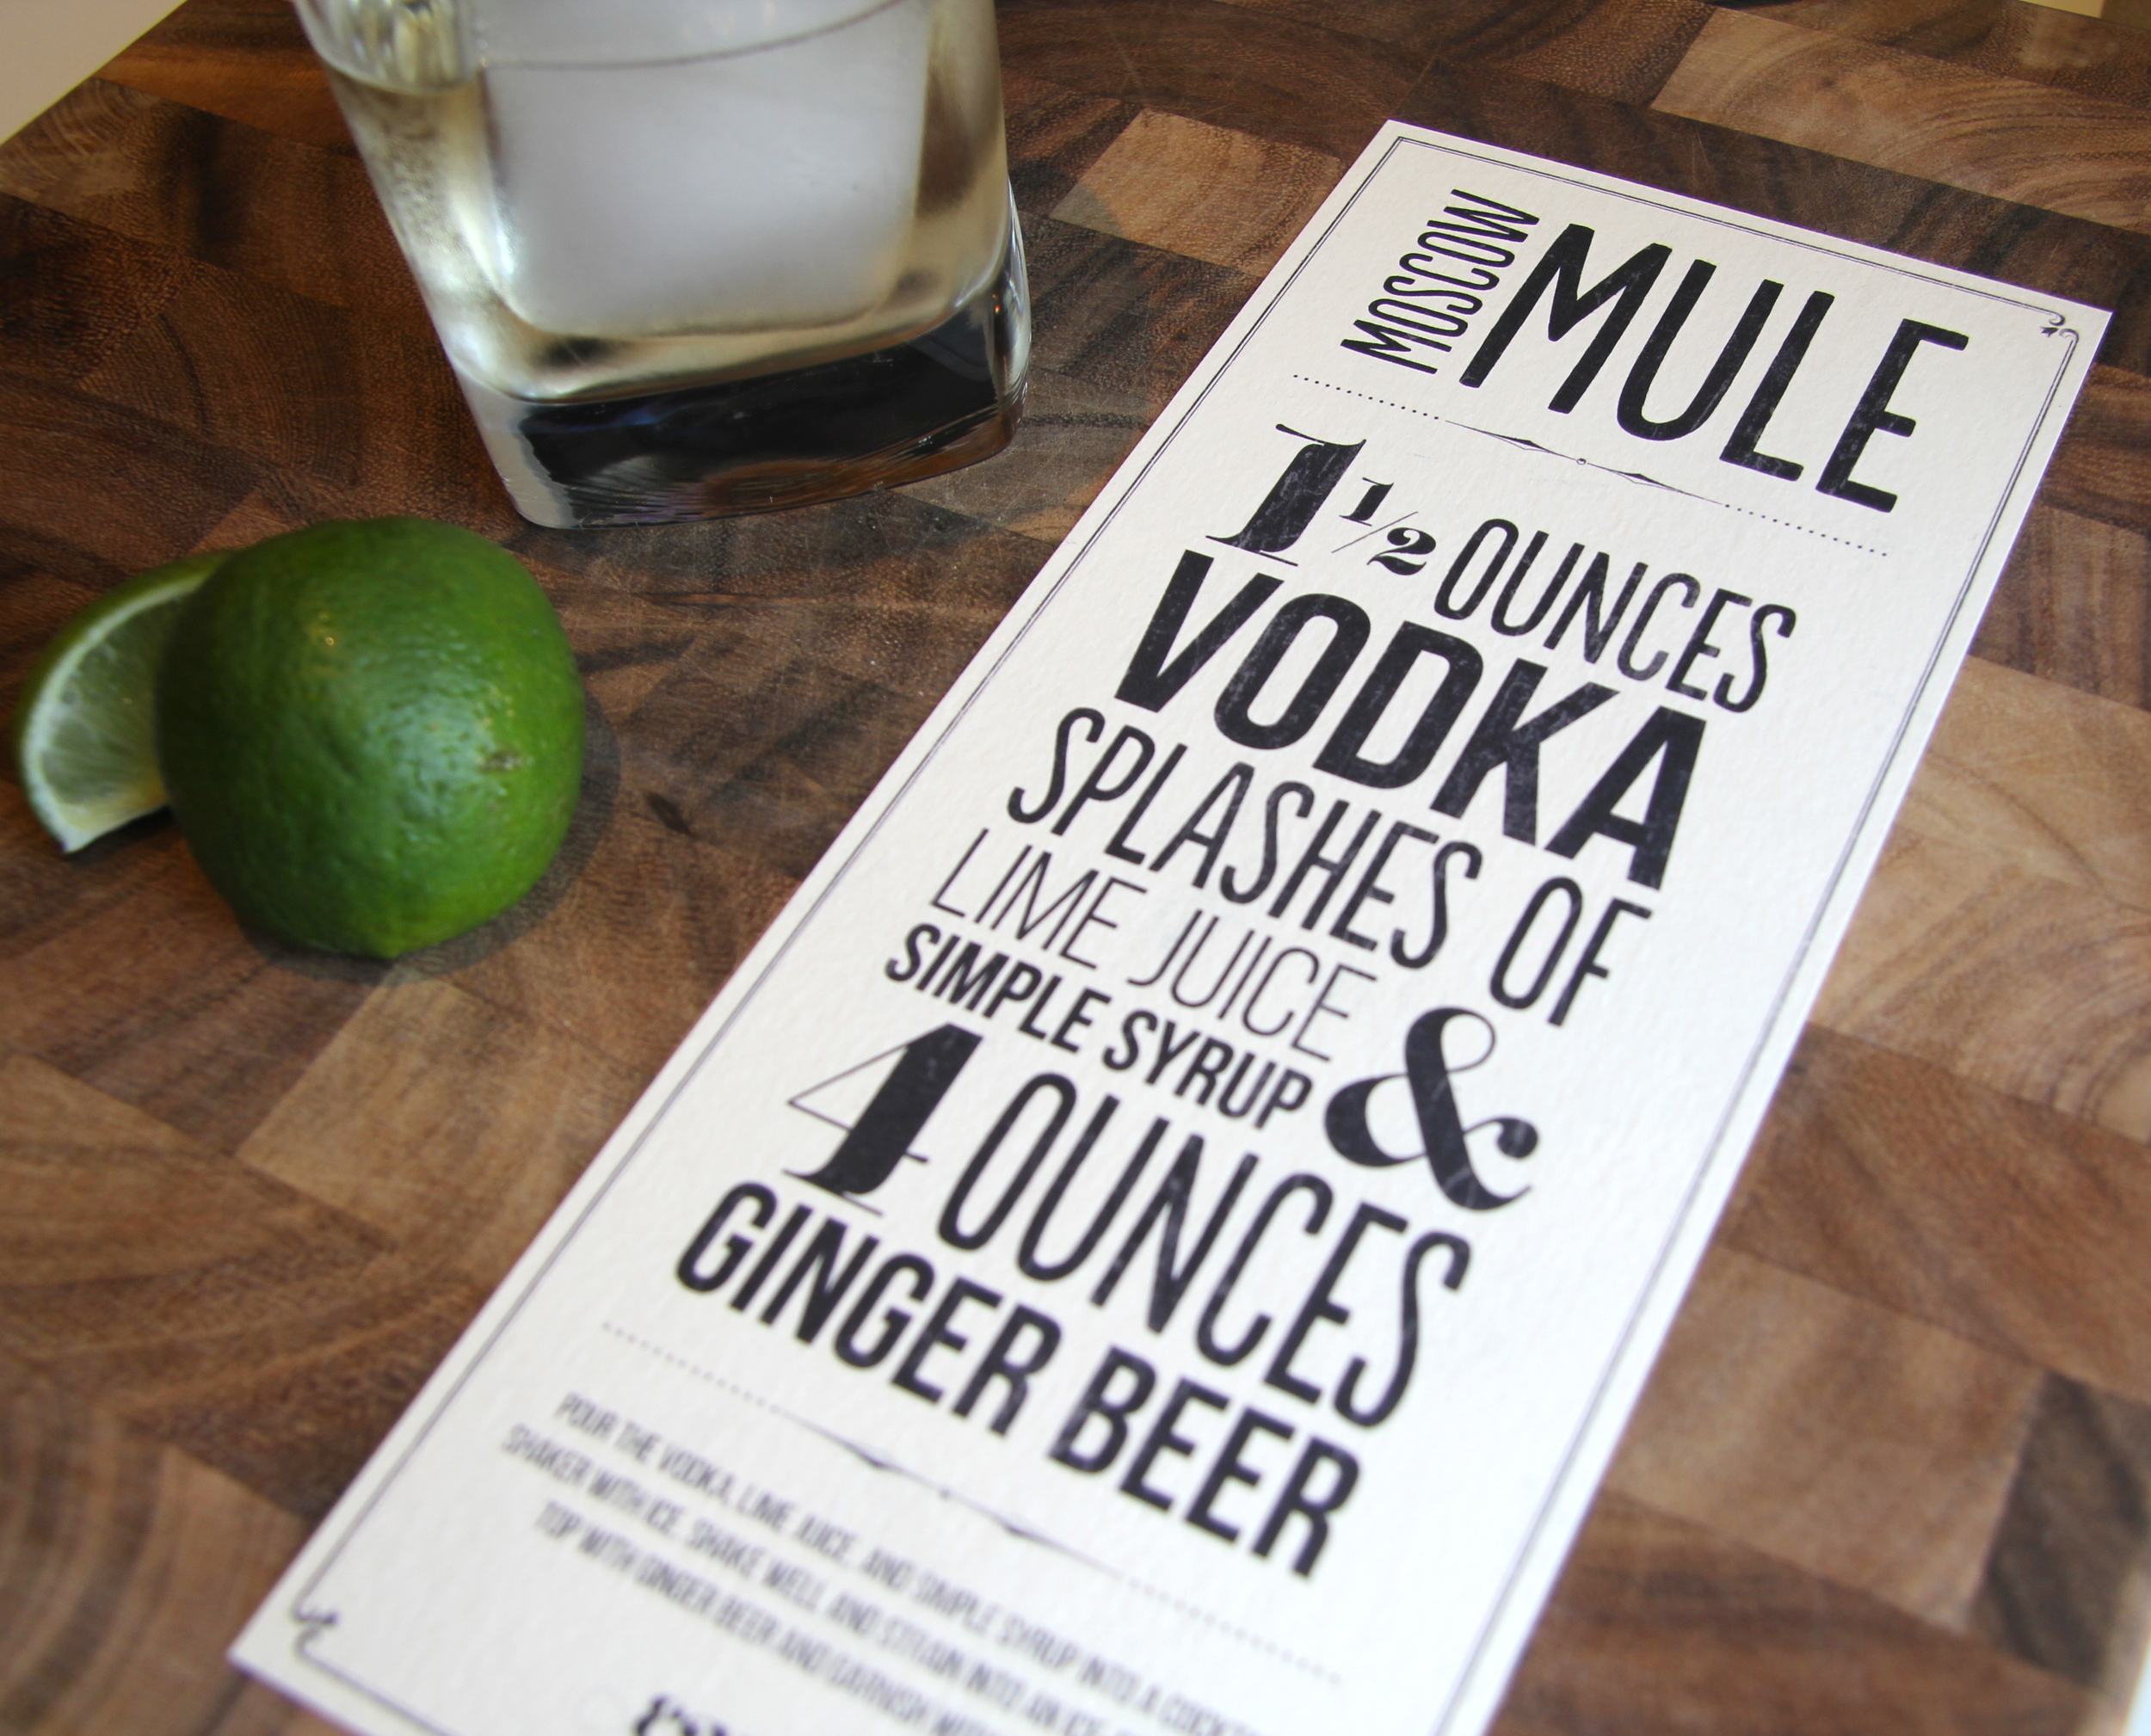 MOSCOW MULE
1 1/2 OUNCES
VODKA
SPLASHES OF
LIME JUICE
SIMPLE SYRUP &
4 OUNCES
GINGER BEER
POUR THE VODKA, LIME JUICE, AND SIMPLE SYRUP INTO A
SHAKER WITH ICE. SHAKE WELL AND STRAIN INTO AN ICE
TOP WITH GINGER BEER AND GARNISH